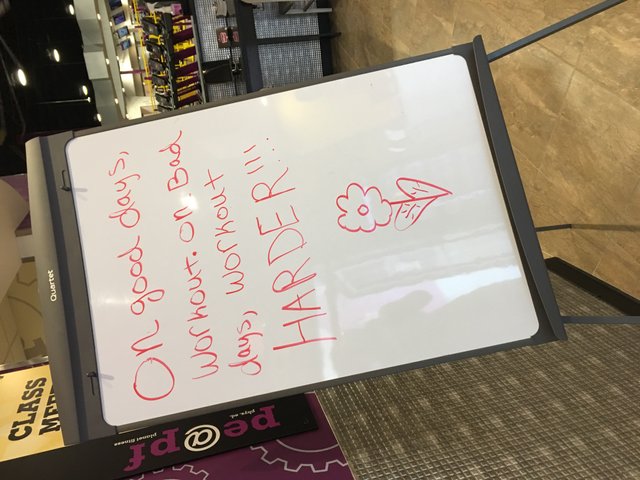 Quartet
On good days,
workout. On Bad
days, workout
HARDER!!!
CLASS
pe@pf
phys. ed.
planet fitness